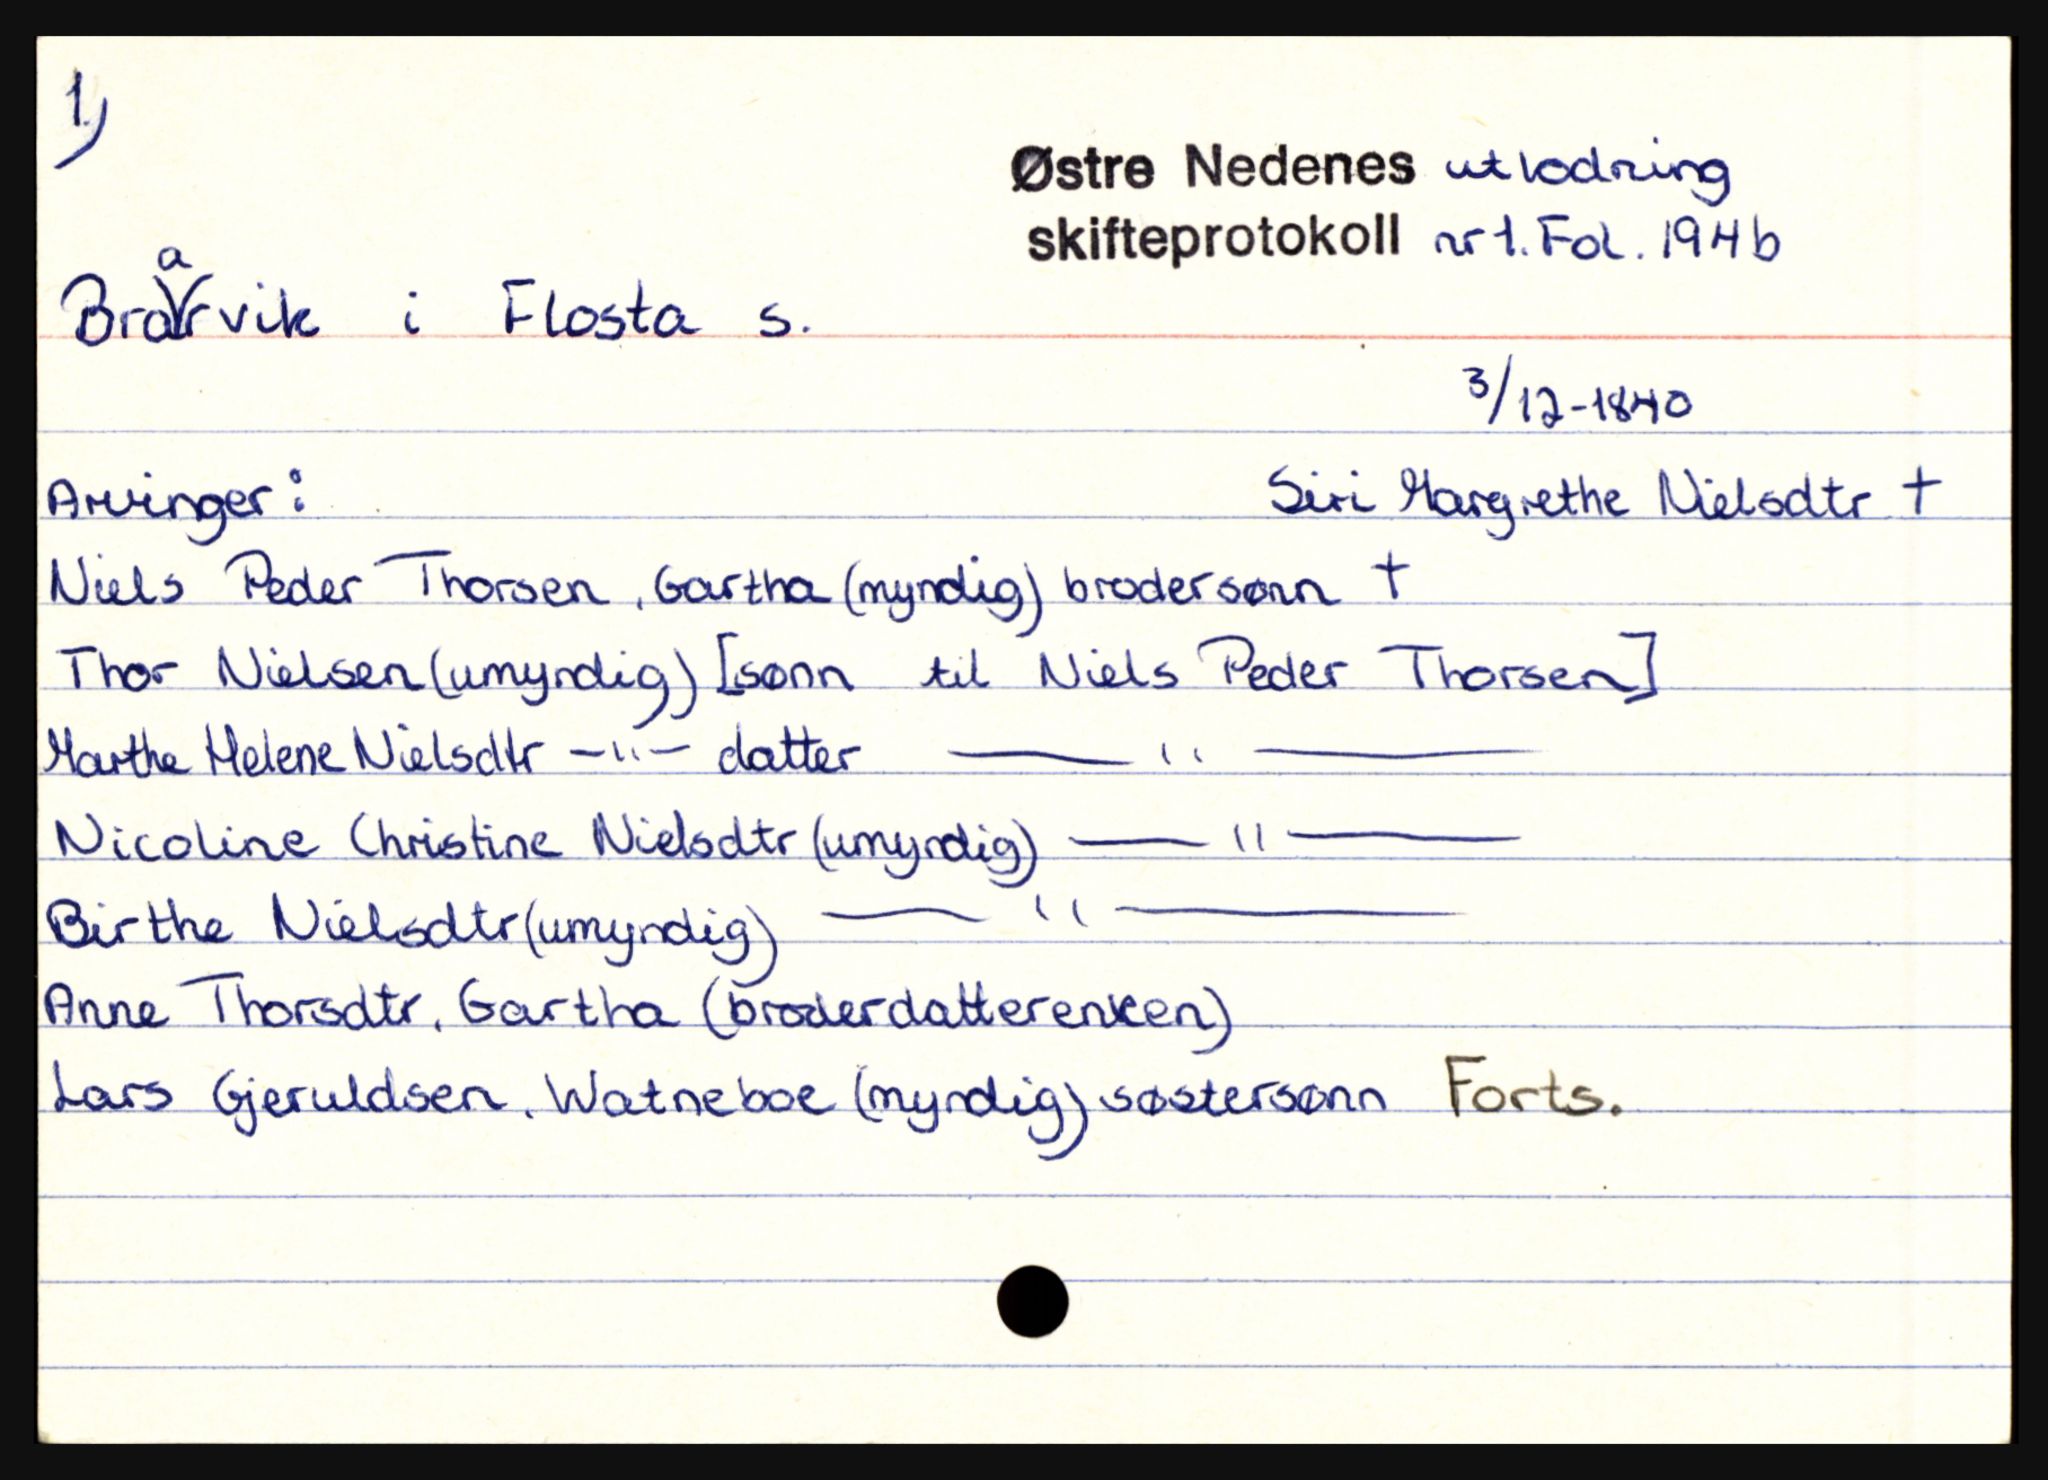 1)
Østre Nedenes utlodning
skifteprotokoll nr 1. Fol. 194b
Braarvik i Flosta s.
3/12-1840
Arvinger: Siri Margrethe Nielsdtr †
Niels Peder Thorsen, Gartha (myndig) brodersønn †
Thor Nielsen (umyndig) [sønn til Niels Peder Thorsen]
Marthe Helene Nielsdtr —"— datter —— " ——
Nicoline Christine Nielsdtr (umyndig) —— " ——
Birthe Nielsdtr (umyndig) —— " ——
Anne Thorsdtr, Gartha (broderdatterenken)
Lars Gjeruldsen, Watneboe (myndig) søstersønn Forts.